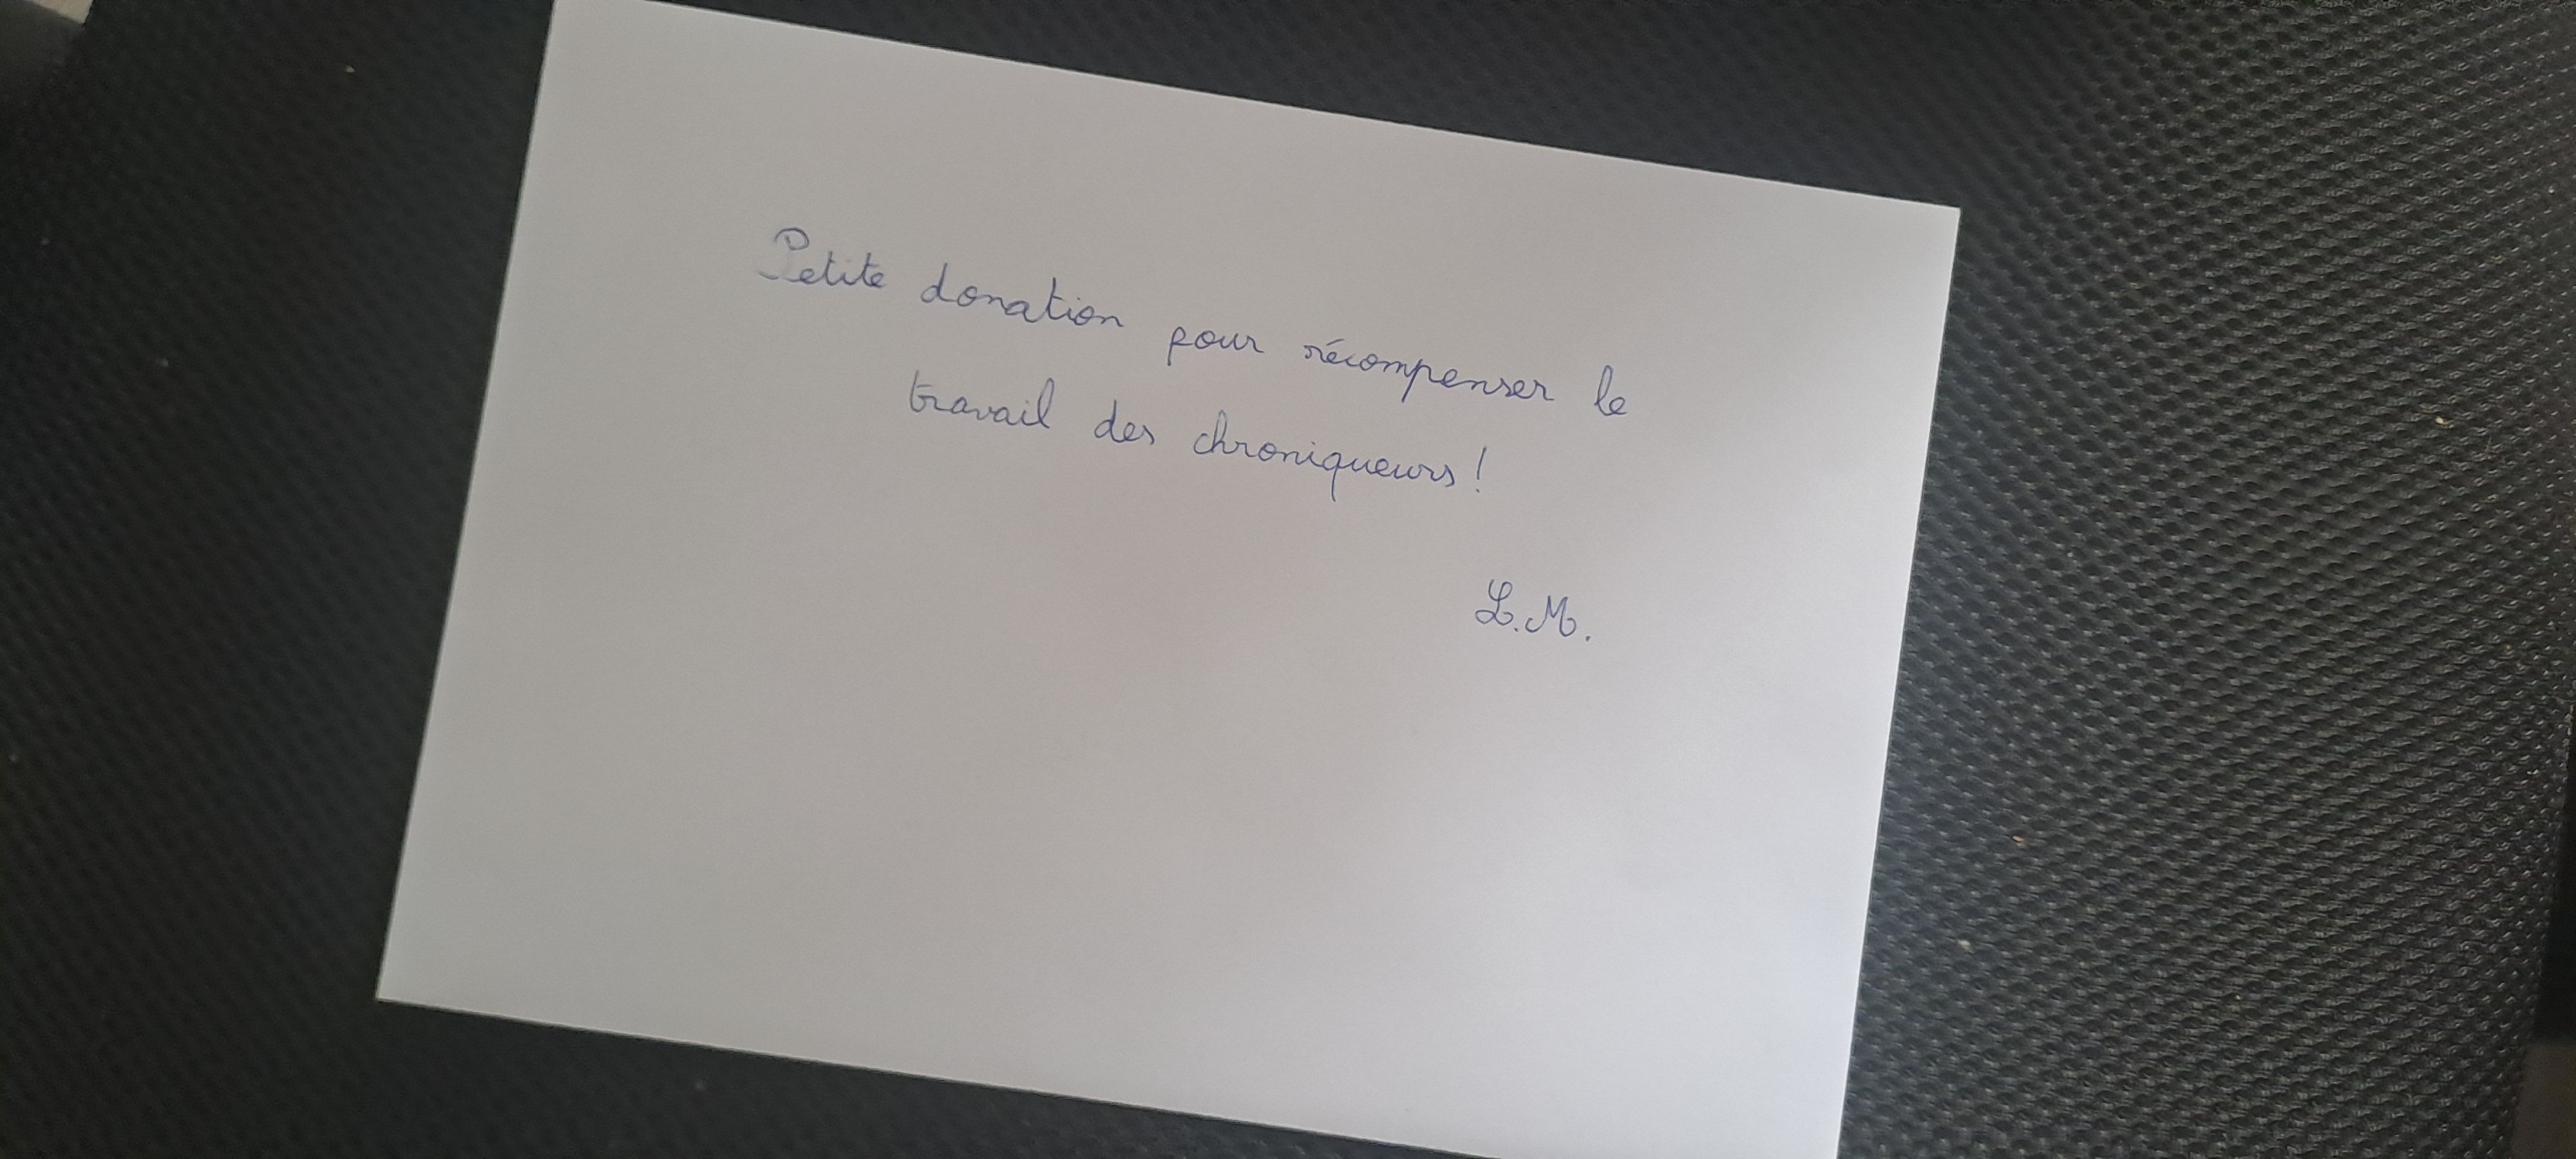 Petite donation pour récompenser le
travail des chroniqueurs !
L.M.